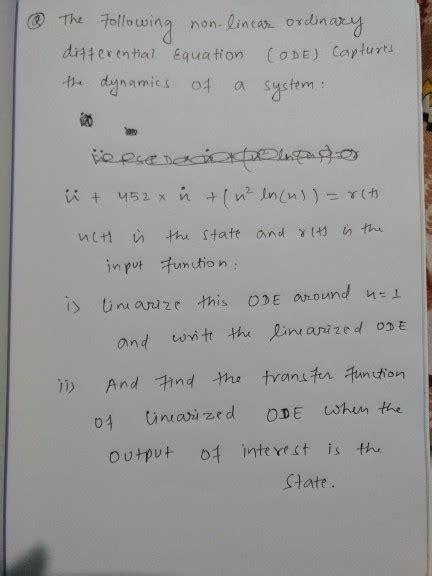 ② The Following non-linear ordinary
differential Equation (ODE) Captures
the dynamics of a system:
ü + 452 x u̇ + (u² ln(u)) = r(t)
u(t) is the state and r(t) is the
input function:
i) Linearize this ODE around u=1
and write the linearized ODE
ii) And Find the transfer Function
of Linearized ODE when the
output of interest is the
state.